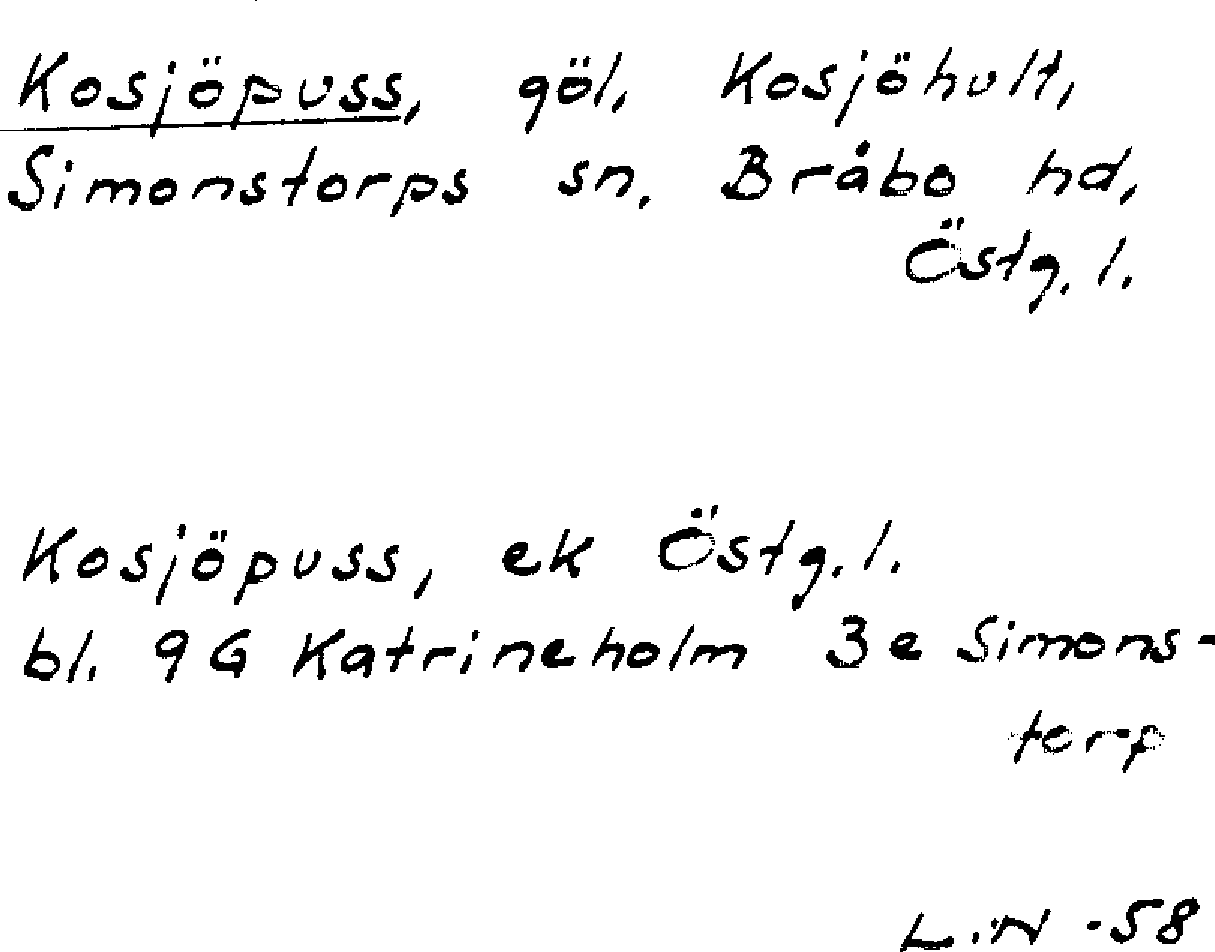 Kosjöpuss, göl, Kosjöhult,
Simonstorps sn, Bråbo hd,
Östg. l.
Kosjöpuss, ek Östg. l.
bl. 9G Katrineholm 3e Simons-
torp
L.N -58